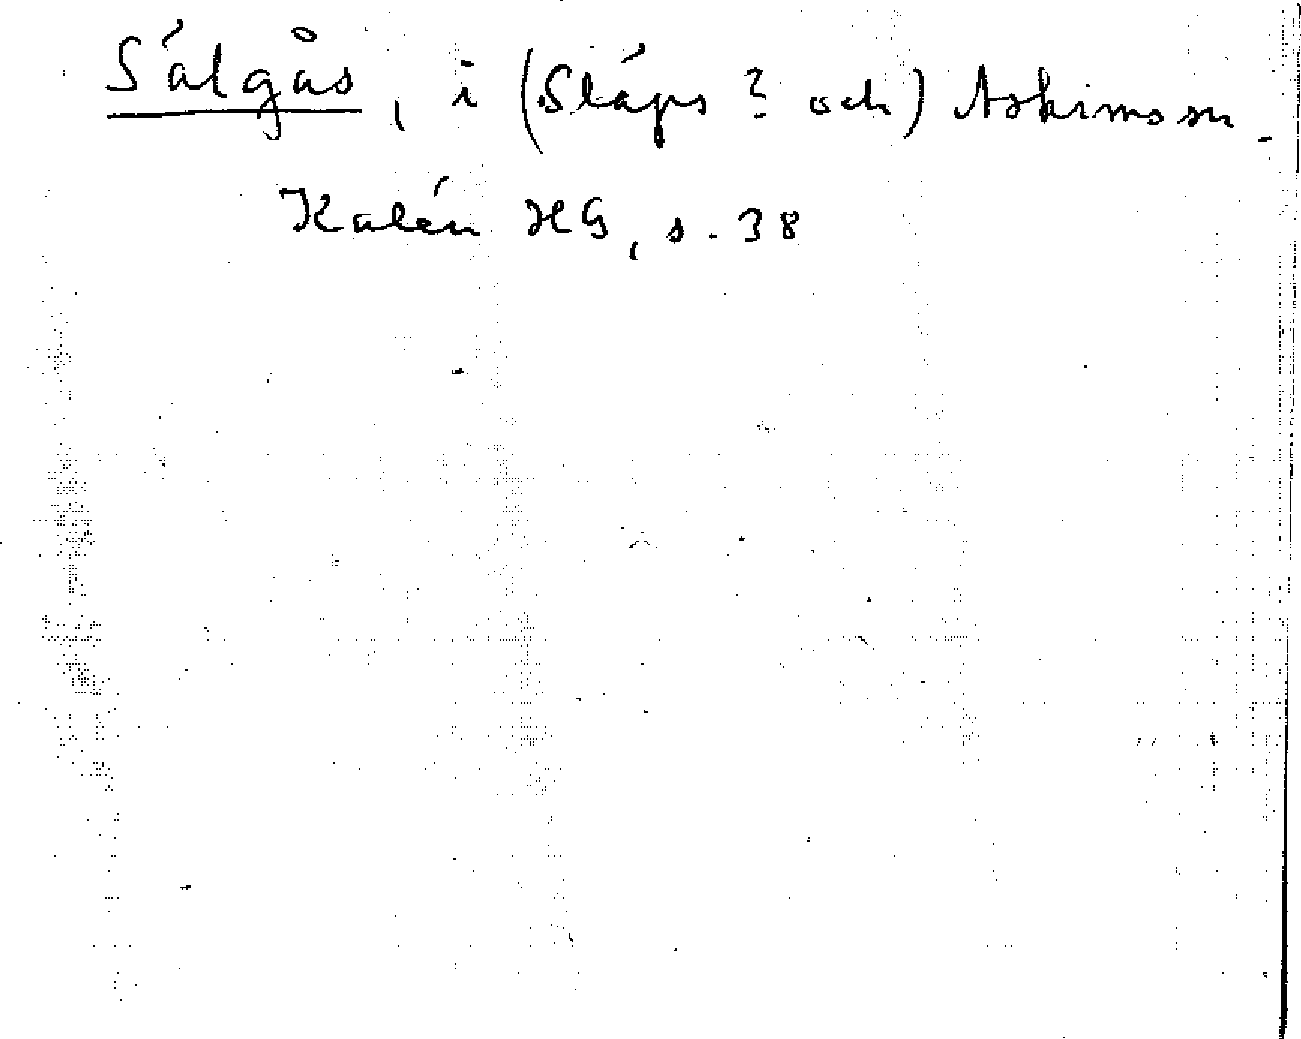 Sálgås, i (Sláps ? och) Askims sn.
Kalén HG, s. 38